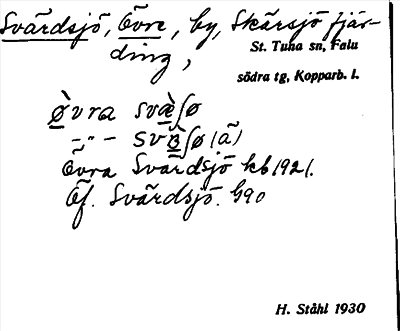 Svärdsjö, Övre, by, Skärsjö fjär-
ding,
St. Tuna sn, Falu
södra tg, Kopparb. l.
ø̀vra svæ̀ʃø
-"- sv ʃø (ä)
Övra Svärdsjö kb 1921.
Öf. Svärdsjö. G90
H. Ståhl 1930